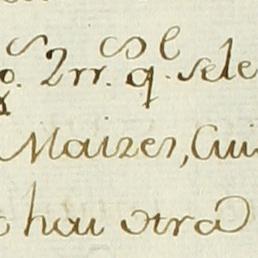 2rr.s q.e sele
Maizes, Cui
hai otra